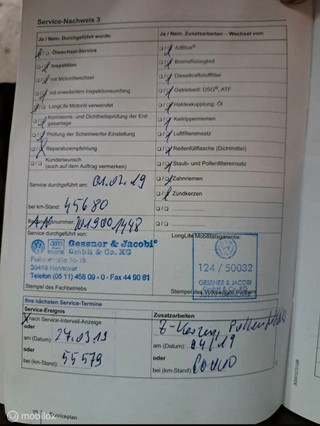 Service-Nachweis 3
Ja / Nein: Durchgeführt wurde:
Ölwechsel-Service
Inspektion
mit Motorölwechsel
mit erweitertem Inspektionsumfang
LongLife Motoröl verwendet
Korrosions- und Dichtheitsprüfung der Erdgasanlage
Prüfung der Scheinwerfer Einstellung
Reparaturempfehlung
Kundenwunsch
(auch auf dem Auftrag vermerken)
Service durchgeführt am: 01.02.19
bei km-Stand: 45680
nummer:
Service durchgeführt von:
Gessner & Jacobi
GmbH & Co. KG
Hannover
Telefon (05 11) 458 09 - 0 - Fax 44 90 81
Stempel des Fachbetriebs
Ja / Nein: Zusatzarbeiten – Wechsel von:
AdBlue®
Bremsflüssigkeit
Dieselkraftstofffilter
Getriebeöl: DSG®, ATF
Haldexkupplung: Öl
Keilrippenriemen
Luftfiltereinsatz
Reifenfüllflasche (Dichtmittel)
Staub- und Pollenfiltereinsatz
Zahnriemen
Zündkerzen
LongLife Mobilitätsgarantie:
124 / 50032
GESSNER & JACOBI
Ihre nächsten Service-Termine
Service-Ereignis
nach Service-Intervall-Anzeige
oder
am (Datum):
oder
bei (km-Stand): 55579
Zusatzarbeiten
am (Datum):
oder
bei (km-Stand):
Serviceplan
© Mobilox